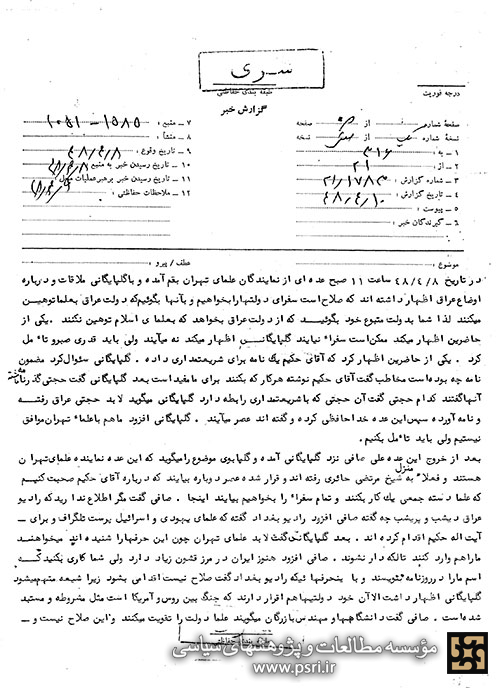 سری
طبقه بندی حفاظتی
درجه فوریت
گزارش خبر
صفحه شماره از صفحه
نسخه شماره یک از نسخه
۱ ـ به : ۳۱۶
۲ ـ از : ۲۱
۳ ـ شماره گزارش :
۴ ـ تاریخ گزارش : ۴۸/۴/۱۰
۵ ـ پیوست :
۶ ـ گیرندگان خبر :
۷ ـ منبع :
۸ ـ منشأ :
۹ ـ تاریخ وقوع : ۴۸/۴/۸
۱۰ ـ تاریخ رسیدن خبر به منبع
۱۱ ـ تاریخ رسیدن خبر برهبرعملیات
۱۲ ـ ملاحظات حفاظتی :
موضوع : عطف / پیرو :
در تاریخ ۴۸/۴/۸ ساعت ۱۱ صبح عده ای از نمایندگان علمای تهران بقم آمده و باگلپایگانی ملاقات و درباره
اوضاع عراق اظهار داشته اند که صلاح است سفرای دولتهارا بخواهیم و بآنها بگوئیم که دولت عراق بعلما توهین
میکنند لذا شما بدولت متبوع خود بگوئید که از دولت عراق بخواهد که بعلمای اسلام توهین نکنند . یکی از
حاضرین اظهار میکند ممکن است سفراء نیایند گلپایگانی اظهار میکند نه میآیند ولی باید قدری صبرو تأمل
کرد . یکی از حاضرین اظهار کرد که آقای حکیم یک نامه برای شریعتمداری داده . گلپایگانی سئوال کرد مضمون
نامه چه بوده است مخاطب گفت آقای حکیم نوشته هرکار که بکنند برای ما مفید است بعد گلپایگانی گفت حجتی گذرنامه
آنها گفتند کدام حجتی گفت آن حجتی که با شریعتمداری رابطه دارد گلپایگانی میگوید لابد حجتی عراق رفته
و نامه آورده سپس این عده خداحافظی کرده و گفته اند عصر میآیند . گلپایگانی افزود ماهم باعلماء تهران موافق
نیستیم ولی باید تأمل بکنیم .
بعد از خروج این عده علی صافی نزد گلپایگانی آمده و گلپا یوی موضوع را میگوید که این عده نماینده علمای تهران
هستند و فعلا به منزل شیخ مرتضی حائری رفته اند و قرار شده عصر دوباره بیایند که درباره آقای حکیم صحبت کنیم
که علما دسته جمعی یک کار بکنند و تمام سفراء را بخواهیم بیایند اینجا . صافی گفت مگر اطلاع ندارید که رادیو
عراق دیشب و پریشب چه گفته صافی افزود رادیو بغداد گفته که علمای یهودی و اسرائیل پرست تلگراف و برای ـ
آیت اله حکیم اقدام کرده اند . بعد گلپایگانی گفت لابد علمای تهران چون این حرفهارا شنیده اند میخواهند
ماراهم وارد کنند تا لکه دار نشوند . صافی افزود هنوز ایران در مرز قشون زیاد دارد ولی شما کاری نکنید که
اسم مارا در روزنامه بنویسند و با این حرفها که رادیو بغداد گفت صلاح نیست اقدامی بشود زیرا شیعه متهم میشود
گلپایگانی اظهار داشت الان خود دولتیها هم اقرار دارند که جنگ بین روس و آمریکا است مثل مشروطه و مستبد
شده است . صافی گفت دانشگاهیها و مهندس بازرگان میگویند علما دولت را تقویت میکنند و این صلاح نیست و ـ
مؤسسه مطالعات و پژوهشهای سیاسی
www.psri.ir